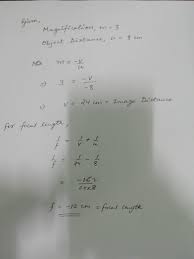 Given,
Magnification, m = 3
Object Distance, u = 8 cm
m = -v/u
3 = -v/-8
v = 24 cm = Image Distance
for focal length,
1/f = 1/v + 1/u
1/f = 1/24 - 1/8
f = -12 cm = focal length